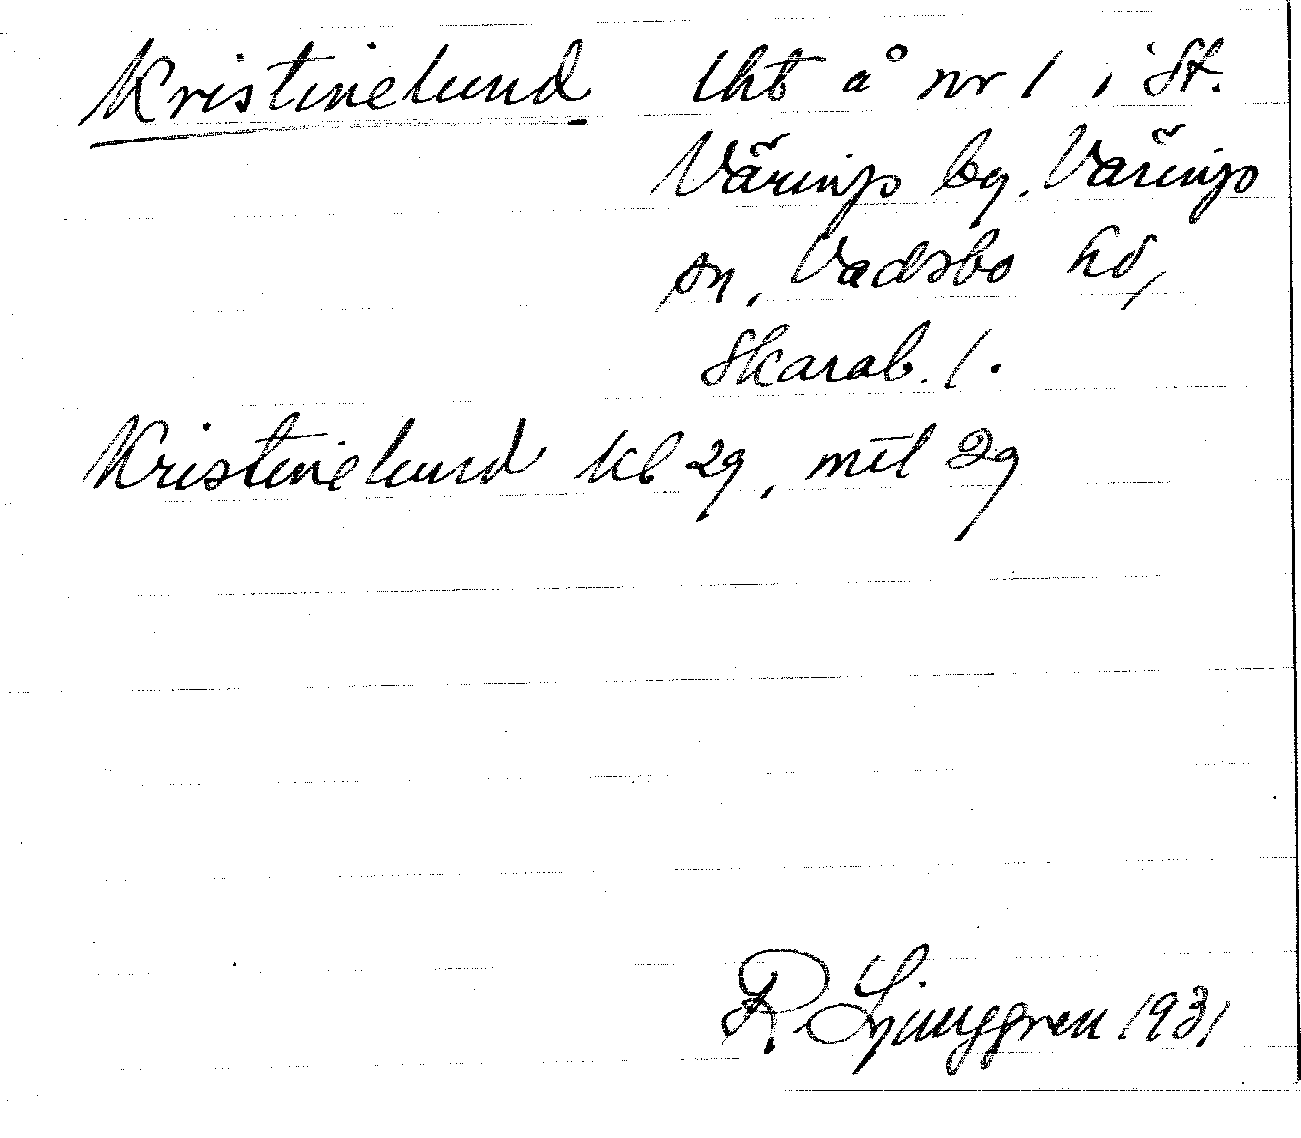 Kristinelund lht å nr 1 i St.
Värings bg. Värings
sn, Vadsbo hd,
Skarab. l.
Kristinelund kb 29, mtl 29
R Ljunggren 1931